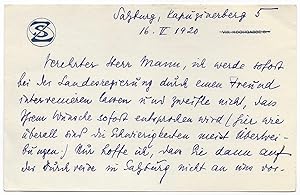 SZ
Salzburg, Kapuzinerberg 5
16. V 1920
VIII. KOCHGASSE 8
Verehrter Herr Mann, ich werde sofort
bei der Landesregierung durch einen Freund
intervenieren lassen und zweifle nicht, dass
Ihrem Wunsche sofort entsprochen wird (hier wie
überall sind die Schwierigkeiten meist Übertrei-
bungen.) Nur hoffe ich, dass Sie dann auf
der Durchreise in Salzburg nicht an uns vor-